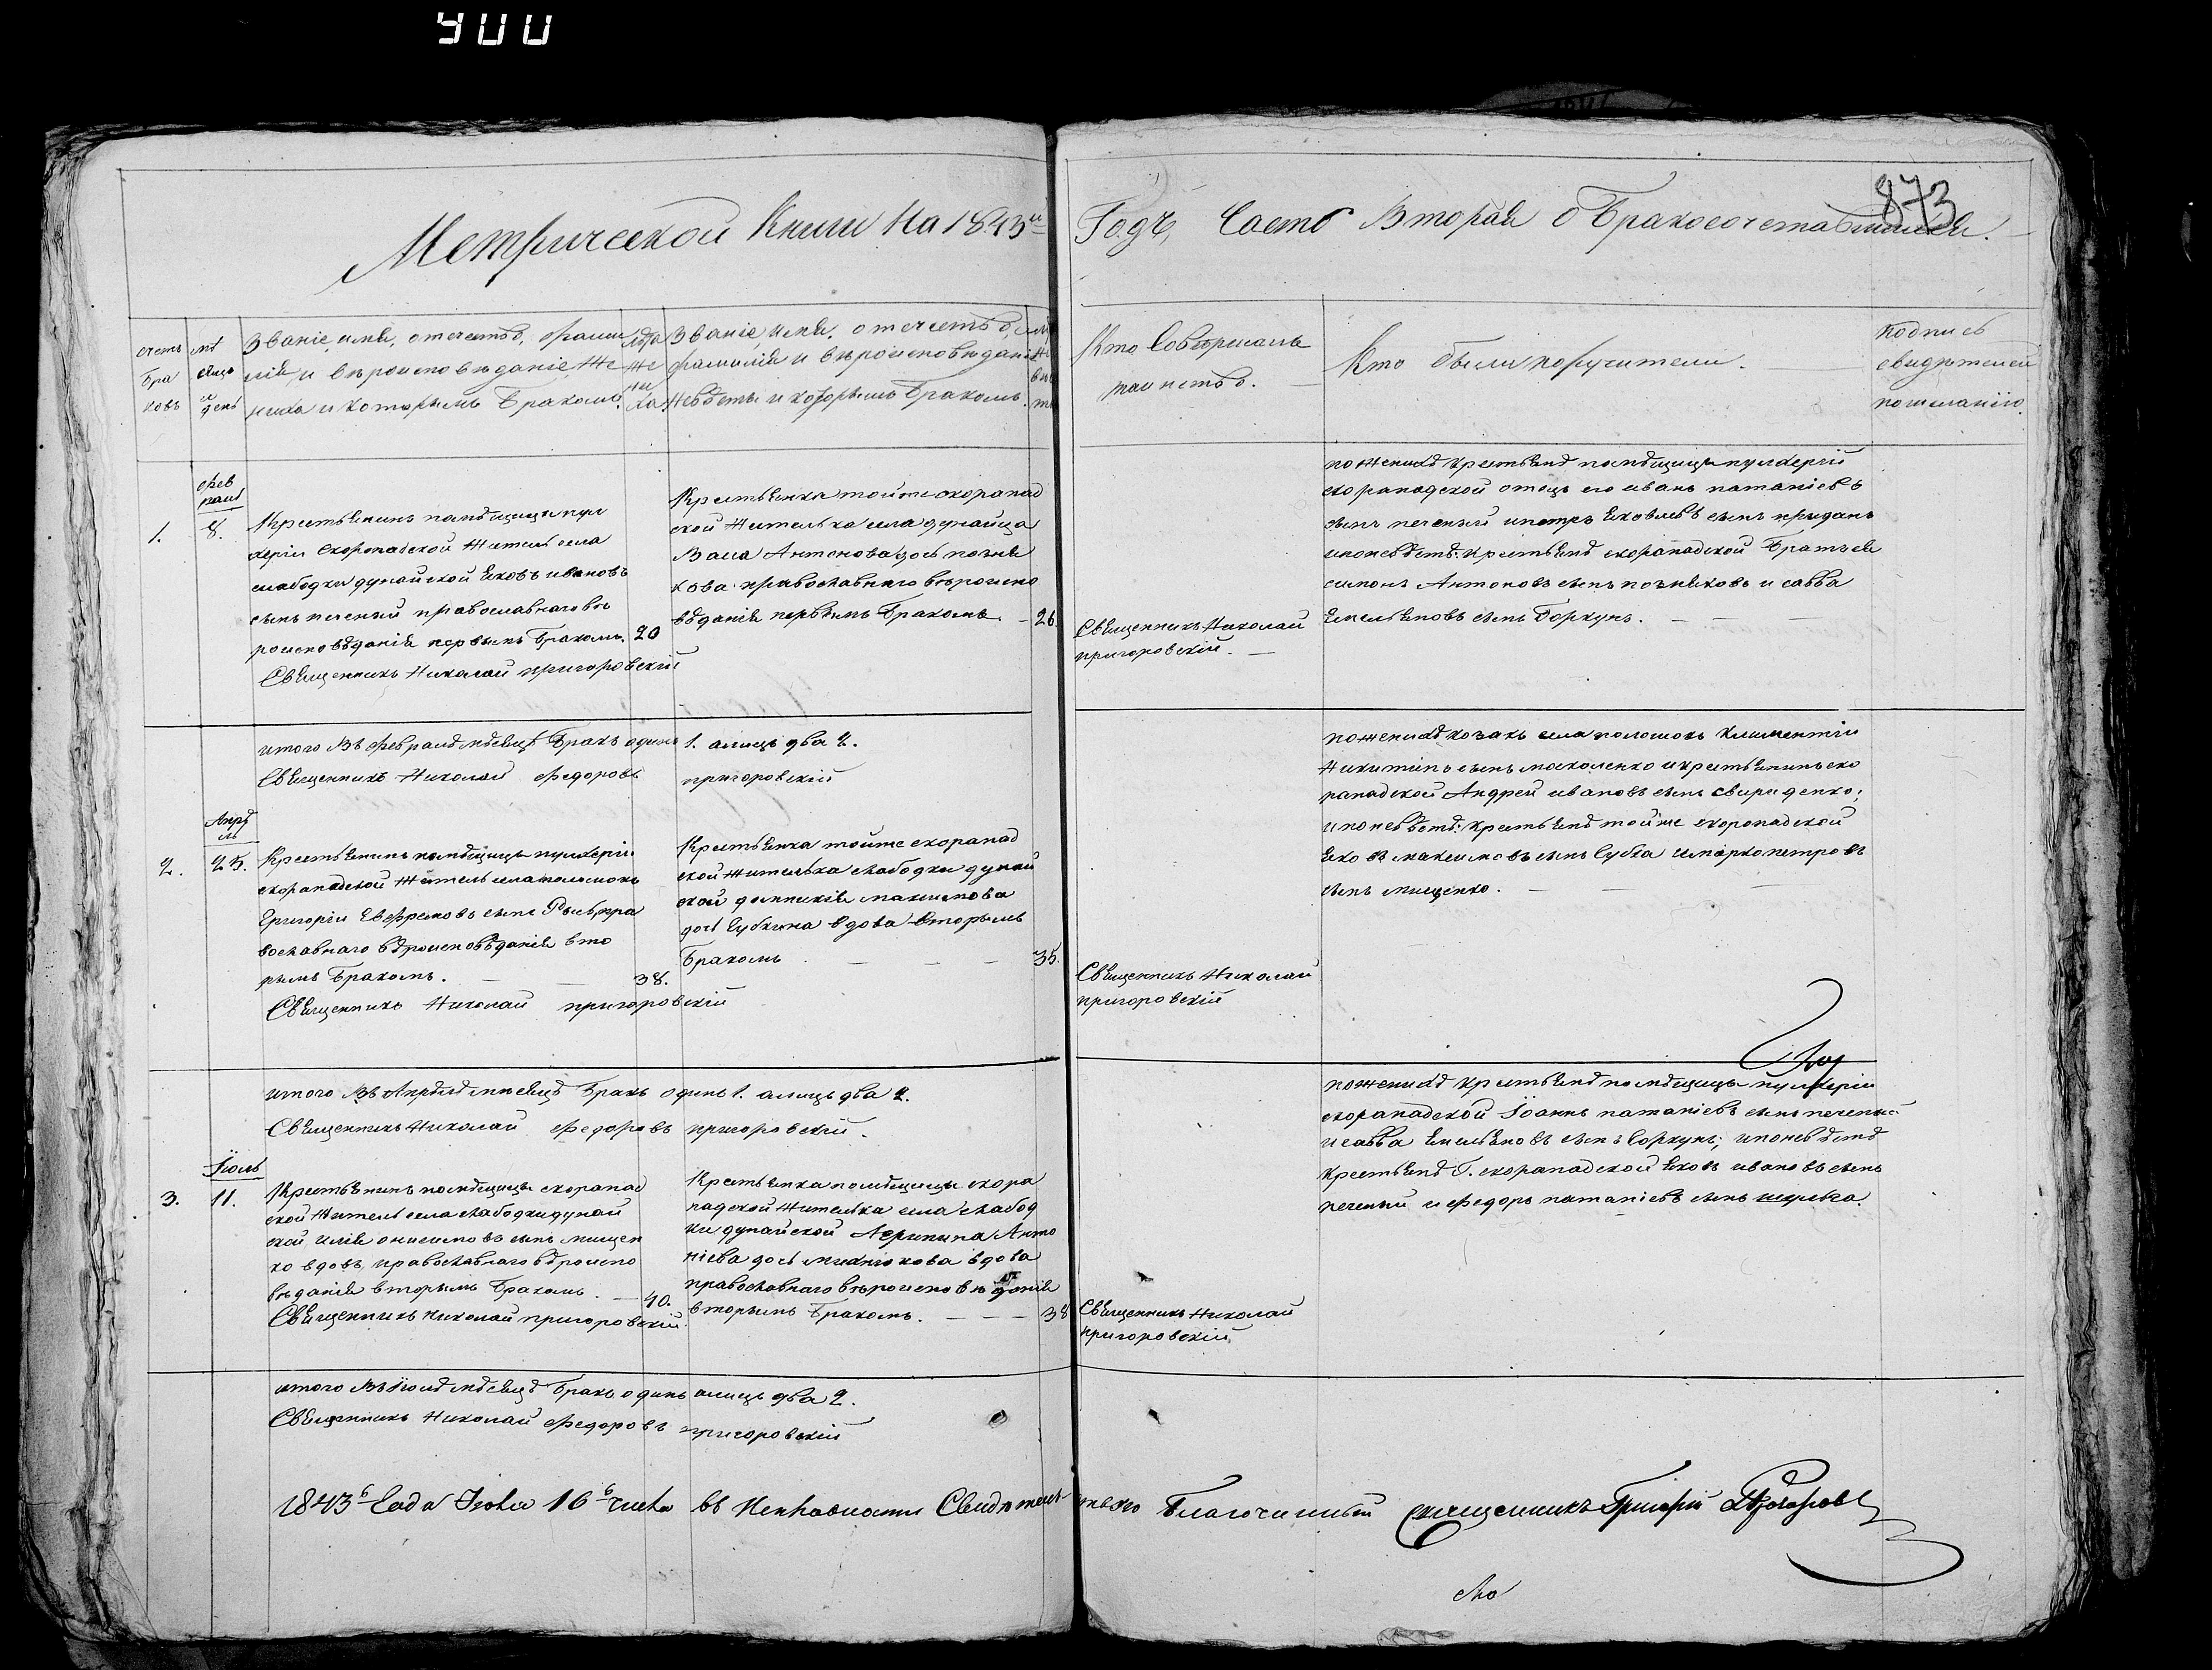 900
873
Метрической Книги На 1843й
Годъ, Часть Вторая о Бракосочетавшихся.
счетъ браковъ
мѣсяцъ и день
Званіе, имя, отечество, фами
лія, и вѣроисповѣданіе, Же
ниха и которымъ Бракомъ.
лѣта
же
ни
ха.
Званіе, имя, отечество,
фамилія и вѣроисповѣданіе
невѣсты и которымъ Бракомъ.
Кто Совершалъ
таинство.
Кто были поручители.
подпись
свидѣтелей
по желанію.
фев
раля
1.
8.
Крестьянинъ помѣщицы пул
херіи Скоропадской Житель села
слабодки дунайской Яковъ ивановъ
сынъ печеный православнаго вѣ
роисповѣданія первымъ Бракомъ. 20
Священникъ Николай пригоровскій
Крестьянка тойже скорапад
ской жителька села дунайца
Васа Антонова дочь позня
кова православнаго вѣроиспо
вѣданія первымъ Бракомъ. 26
Священникъ Николай
пригоровскій.
по женихѣ крестьянѣ помѣщицы пулхеріи
скорападской отецъ его иванъ патапіевъ
сынъ печеный и петръ Яковлевъ сынъ приданъ
и по невѣстѣ: крестьянѣ скорападской Братъ ея
симонъ Антоновъ сынъ позняковъ и савва
Емельяновъ сынъ Боркунъ.
итого Въ февралѣ мѣсяцѣ Бракъ одинъ 1. а лицъ два 2.
Священникъ Николай федоровъ пригоровскій
Апрѣ
ль
2.
25.
Крестьянинъ помѣщицы пулхеріи
скорападской Житель села полошокъ
Григорій Ефремовъ сынъ пра
вославнаго вѣроисповѣданія вто
рымъ Бракомъ. 38.
Священникъ Николай пригоровскій
Крестьянка тойже скорапад
ской жителька слабодки дунай
ской домникія максимова
дочь Субкина вдова вторымъ
Бракомъ 35.
Священникъ Николай
пригоровскій
по женихѣ козакъ села полошокъ климентій
Никитинъ сынъ москаленко и крестьянинъ ско
рападской Андрей ивановъ сынъ свириденко;
и по невѣстѣ: крестьянѣ тойже скоропадской
Яковъ максимовъ сынъ Субка и марко петровъ
сынъ мищенко.
итого Въ Апрѣлѣ мѣсяцѣ Бракъ одинъ 1. а лицъ два 2.
Священникъ Николай федоровъ пригоровскій.
Іюль
3.
11.
Крестьянинъ помѣщицы скорапад
ской Житель села слабодки дунай
ской Илія онисимовъ сынъ мищен
ко вдовъ, православнаго вѣроиспо
вѣданія вторымъ Бракомъ. 40.
Священникъ Николай пригоровскій.
Крестьянка помѣщицы скора
падской жителька села слабод
ки дунайской Агрипина Анто
ніева дочь вдова
православнаго вѣроисповѣданія
вторымъ Бракомъ. 38
Священникъ Николай
пригоровскій
по женихѣ крестьянѣ помѣщицы пулхеріи
скорападской Іоаннъ патапіевъ сынъ печеный
и савва Емельяновъ сынъ Боркунъ; и по невѣстѣ
Крестьянѣ Г. скорападской Яковъ ивановъ сынъ
печеный и федоръ патапіевъ сынъ
итого Въ Іюлѣ мѣсяцѣ Бракъ одинъ а лицъ два 2.
Священникъ Николай федоровъ пригоровскій
1843го Года 16го числа въ Свидѣтельствую Благочинный священникъ Григорій